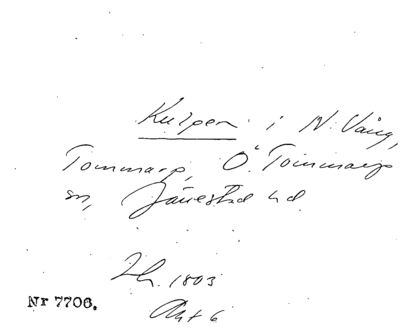 Kulpen i N. Vång,
Tommarp, Ö. Tommarps
sn, Järrestad hd
Lh. 1803
Akt 6
Nr 7706.